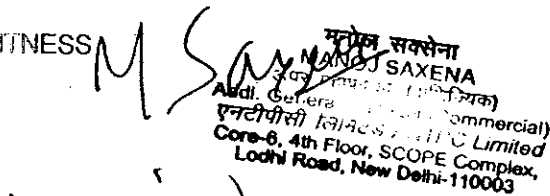 ITNESS
M Saxena
मनोज सक्सेना
MANOJ SAXENA
Addl. General Commercial)
एनटीपीसी लिमिटेड / NTPC Limited
Core-6, 4th Floor, SCOPE Complex,
Lodhi Road, New Delhi-110003